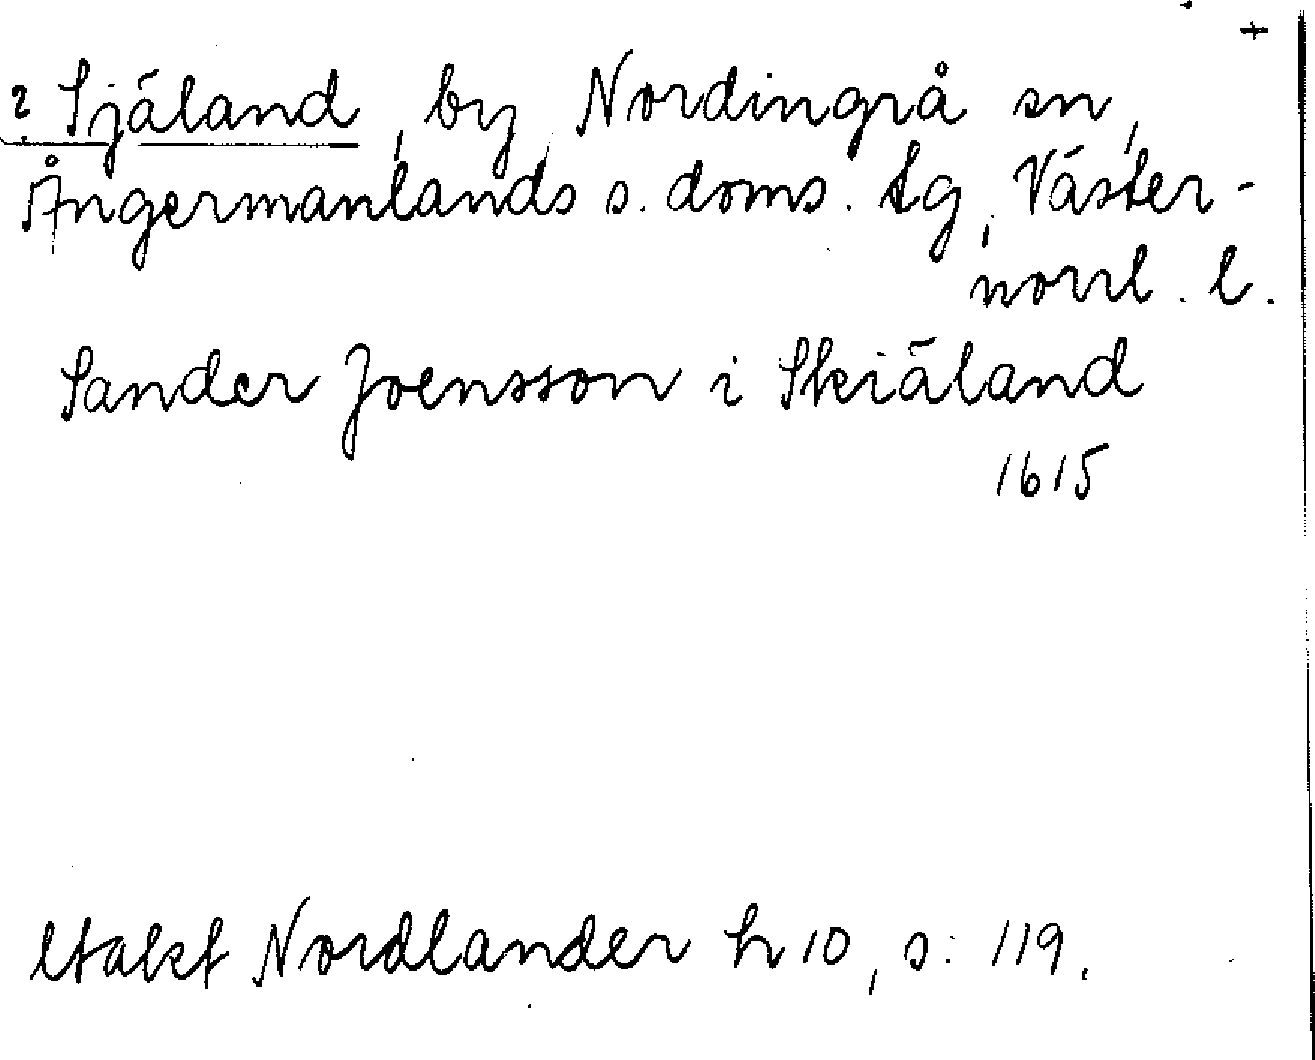 +
? Själand, by, Nordingrå sn,
Ångermanlands s. doms. tg, Väster-
norrl. l.
Sander Joensson i Skiäland
1615
Nordlander h 10, s: 119.